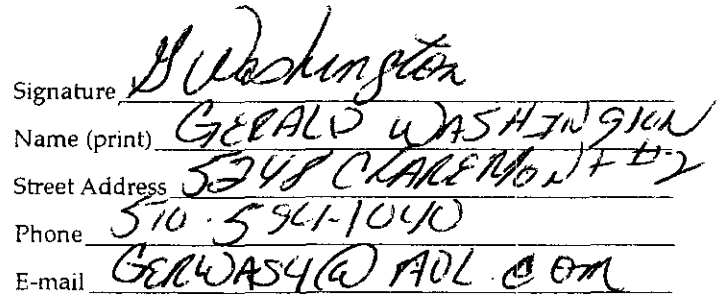 Signature G Washington
Name (print) GERALD WASHINGTON
Street Address 5248 CLAREMONT #2
Phone 510-594-1040
E-mail GERWASY@AOL.COM